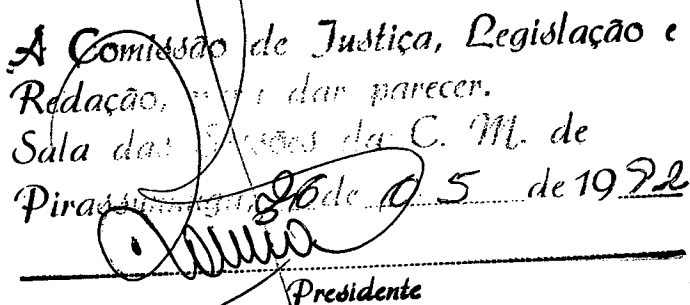 A Comissão de Justiça, Legislação e
Redação, para dar parecer.
Sala das Sessões da C. M. de
Pirassununga, 26 de 05 de 1992
Presidente